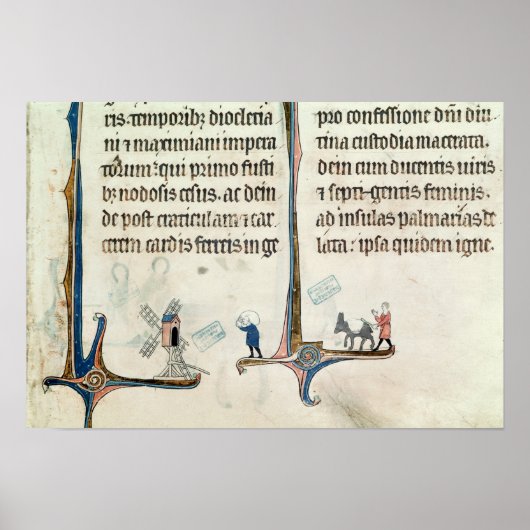 ris. temporibꝫ diocleti
ani ⁊ maximiani impera
torum: qui primo fusti
bꝫ nodosis cesus. ac dein
de post craticulam ⁊ car
cerem cardis ferreis in ge
pro confessione dn̄i diu
tina custodia macerata.
dein cum ducentis uiris
⁊ septi-gentis feminis.
ad insulas palmarias de
lata: ipsa quidem igne.